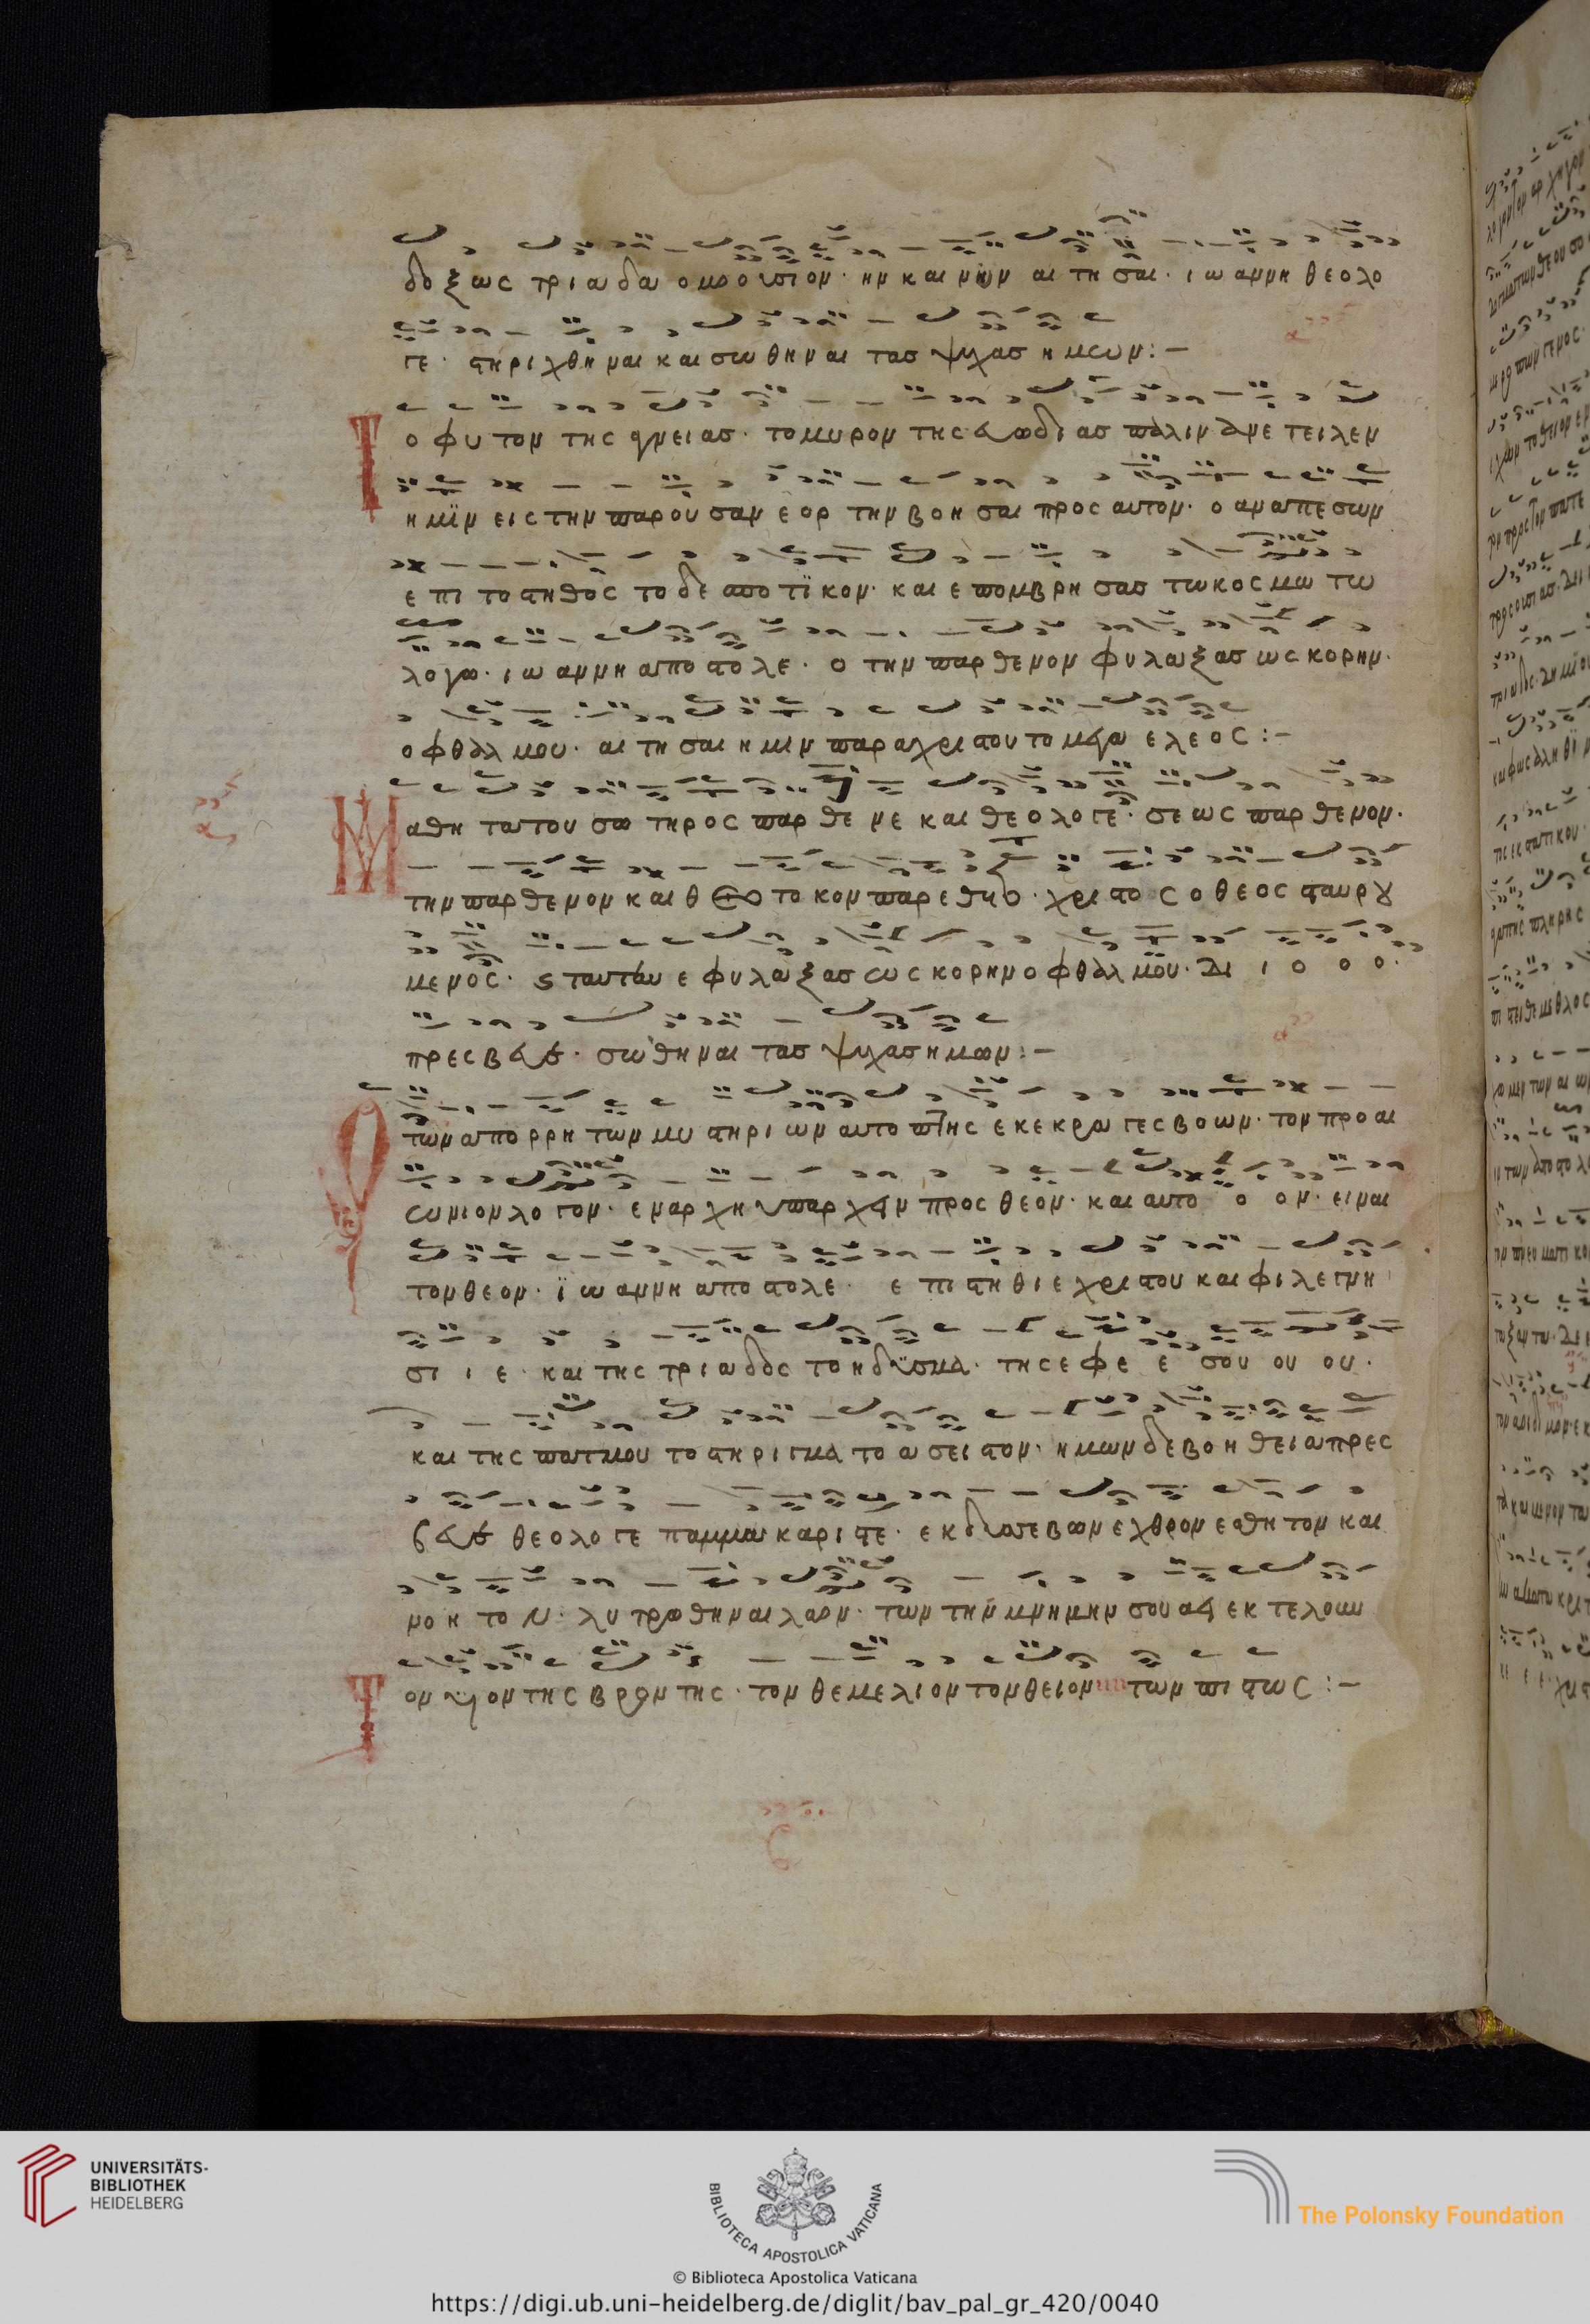 δοξως τριαδα ομοουσιον· ην και νυν αιτησαι· ιωαννη θεολο
γε· στηριχθηναι και σωθηναι τας ψυχας ημων:—
Το φυτον της αγνειας· το μυρον της ευωδιας παλιν ανετειλεν
ημιν εις την παρουσαν εορτην βοησαι προς αυτον· ο αναπεσων
επι το στηθος το δεσποτικον· και επομβρησας τω κοσμω τω
λογω· ιωαννη αποστολε· ο την παρθενον φυλαξας ως κορην·
οφθαλμου· αιτησαι ημιν παρα χριστου το μεγα ελεος:—
Μαθητα του σωτηρος παρθενε και θεολογε· σε ως παρθενον·
την παρθενον και θεοτοκον παρεθετο· χριστος ο θεος σταυρου
μενος· ταυταν εφυλαξας ως κορην οφθαλμου· διοοο·
πρεσβευε· σωθηναι τας ψυχας ημων:—
των απορρητων μυστηριων αυτοπτης εκεκραγες βοων· τον προαι
ωνιον λογον· εν αρχη υπαρχειν προς θεον· και αυτοοον· ειναι
τον θεον· ιωαννη αποστολε· επιστηθιε χριστου και φιλε γνη
σιιε· και της τριαδος το ηδυσμα· της εφεεσου ου ου·
και της πατμου το στηριγμα το ασειστον· ημων δε βοηθεια πρεσ
βευε θεολογε παμμακαριστε· εκ δυσσεβων εχθρον εσθητον και
νοητον· λυτρωθηναι λαον· των την μνημην σου αει εκτελουν
Τον υιον της βροντης· τον θεμελιον τον θειον των πιστως:—
UNIVERSITÄTS-
BIBLIOTHEK
HEIDELBERG
BIBLIOTECA APOSTOLICA VATICANA
The Polonsky Foundation
© Biblioteca Apostolica Vaticana
https://digi.ub.uni-heidelberg.de/diglit/bav_pal_gr_420/0040